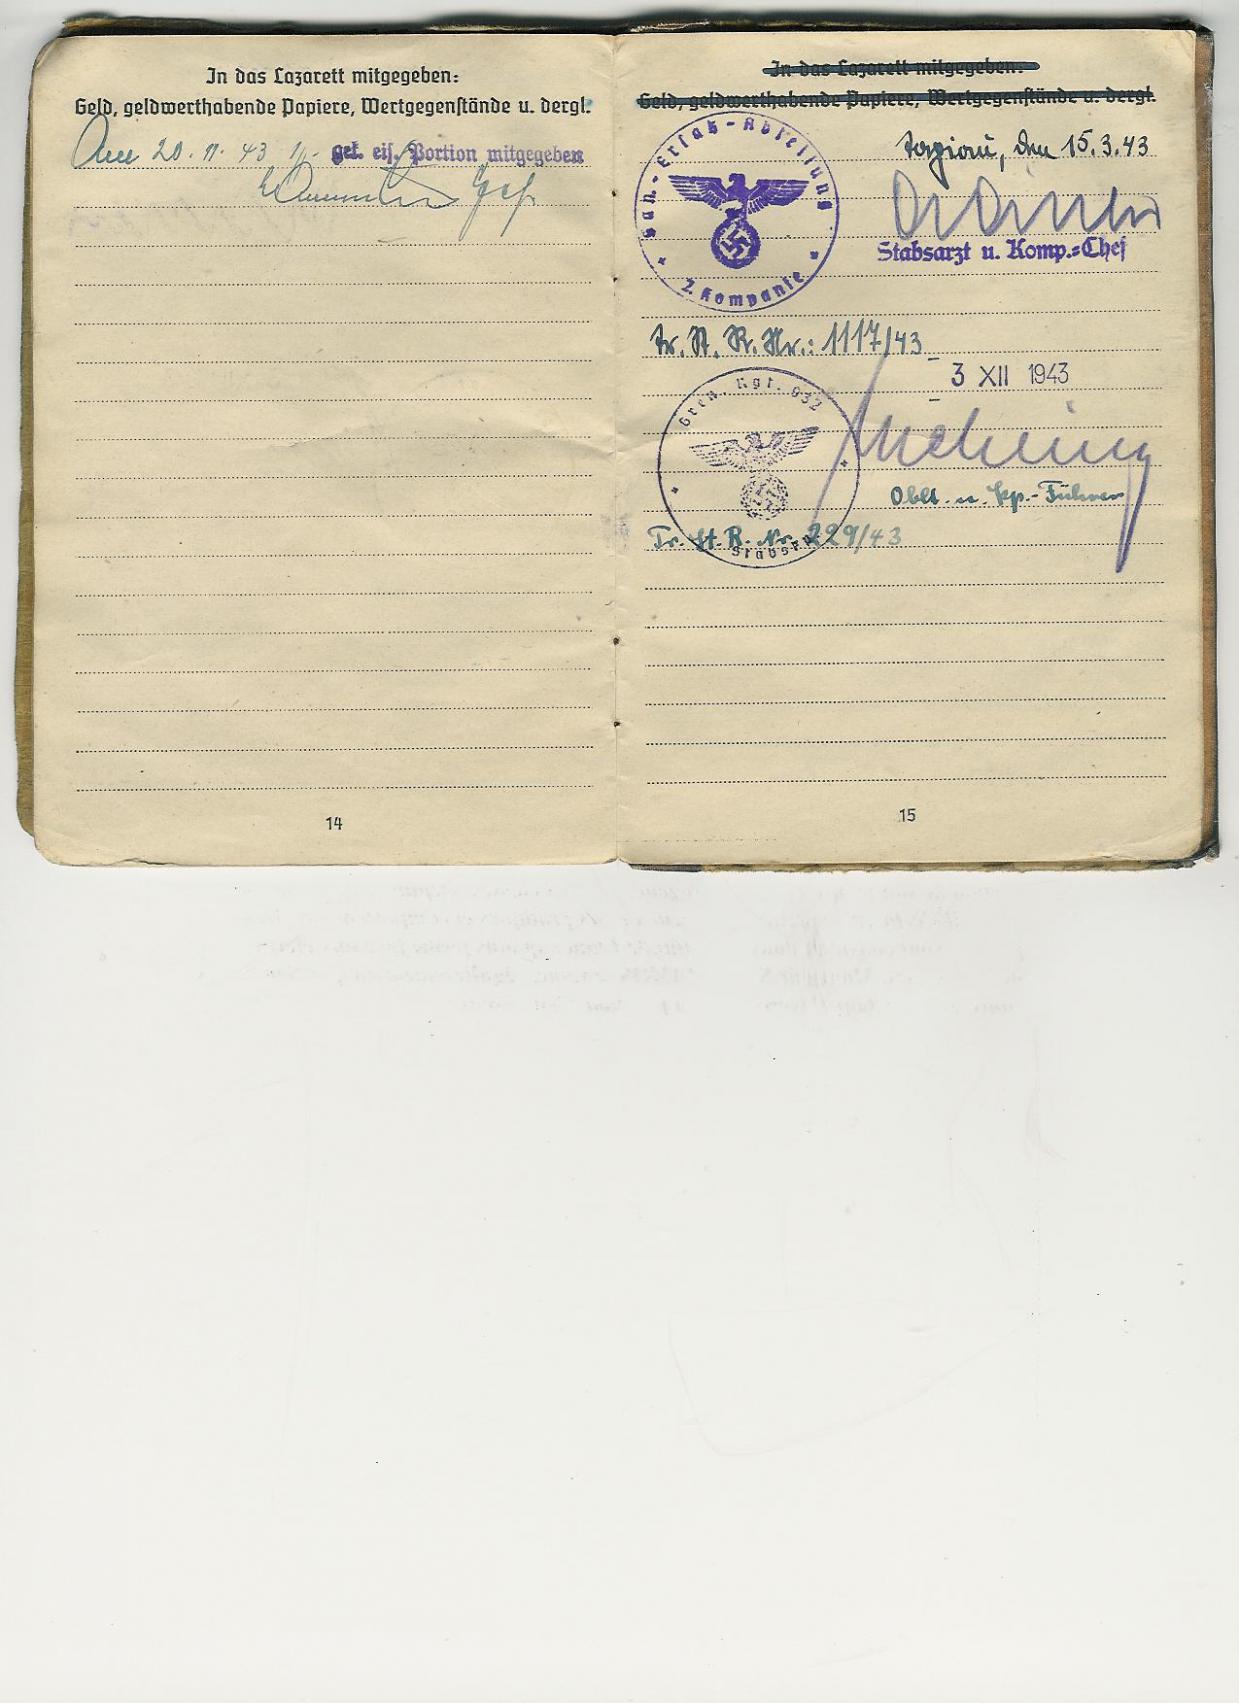 In das Lazarett mitgegeben:
Geld, geldwerthabende Papiere, Wertgegenstände u. dergl.
Am 20. 11. 43 1 gek. eis. Portion mitgegeben
14
In das Lazarett mitgegeben:
Geld, geldwerthabende Papiere, Wertgegenstände u. dergl.
San.-Ersatz-Abteilung
2. Kompanie
den 15.3.43
Stabsarzt u. Komp.=Chef
Tr. St. R. Nr.: 1117/43
3 XII 1943
Gren. Rgt. 932
Oblt. u. Kp.-Führer
Tr. St. R. Nr. 229/43
15